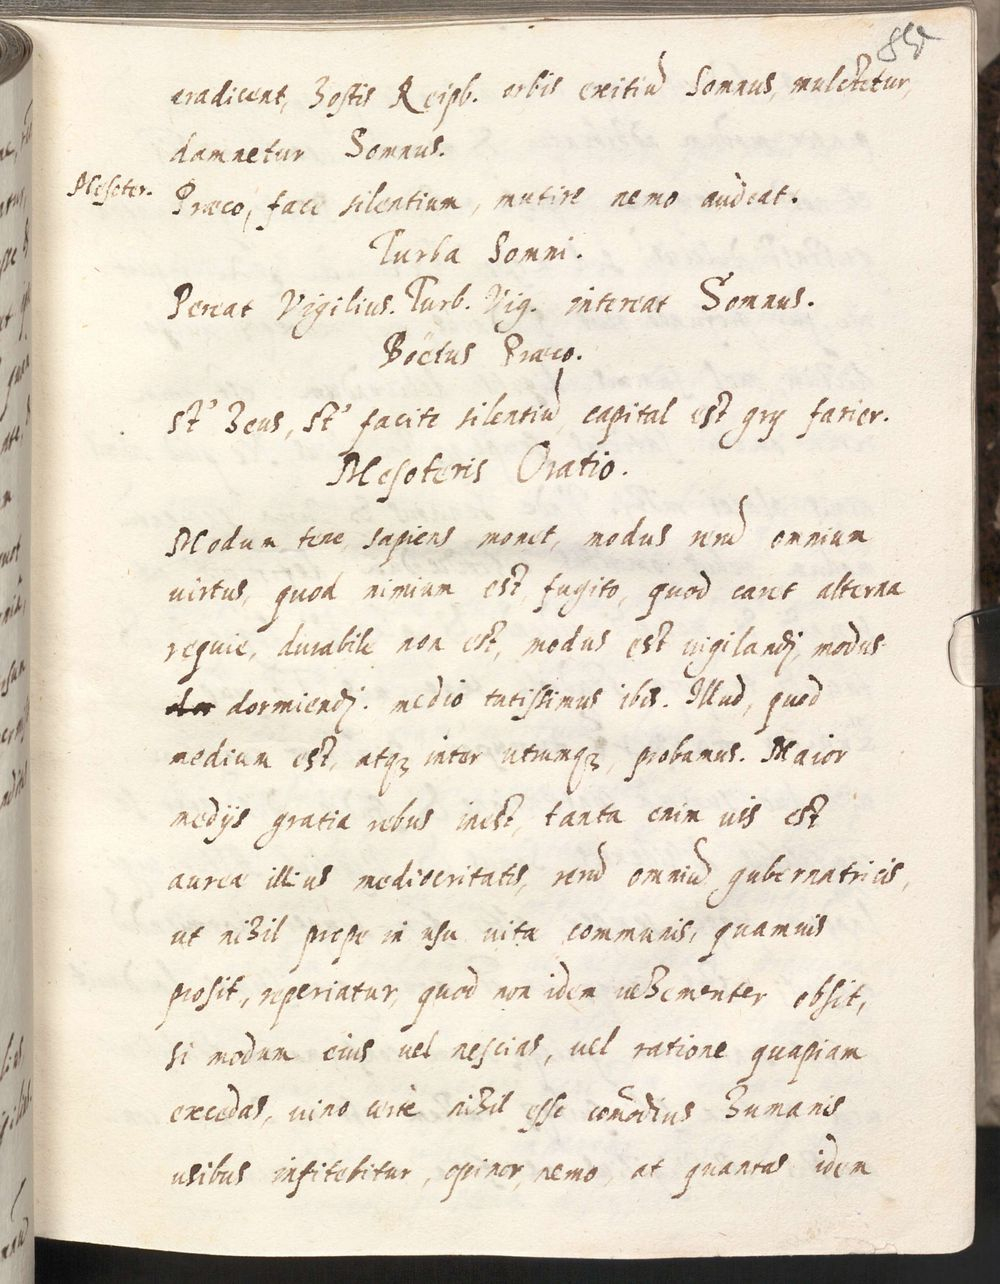 85
eradicent, hostis Reipb. orbis exitiū Somnus, mulctetur,
damnetur Somnus.
Mesoter. Præco, face silentium, mutire nemo audeat.
Turba Somni.
Pereat Vigilius. Turb. Vig. intereat Somnus.
Boëtus Præco.
St' heus, st' facite silentiū, capital est gry farier.
Mesoteris Oratio.
Modum tene, sapiens monet, modus rerū omnium
virtus, quod nimium est, fugito, quod caret alterna
requie, durabile non est, modus est vigilandj, modus
dormiendj. medio tutissimus ibis. Illud, quod
medium est, atqȝ inter utrumqȝ, probamus. Maior
medijs gratia rebus inest, tanta enim uis est
aureæ illius mediocritatis, rerū omniū gubernatricis,
ut nihil prope in usu uitæ communis, quamuis
prosit, reperiatur, quod non idem uehementer obsit,
si modum eius uel nescias, uel ratione quapiam
excedas, uino certè nihil esse com̄odius humanis
usibus infitebitur, opinor, nemo, at quantas idem